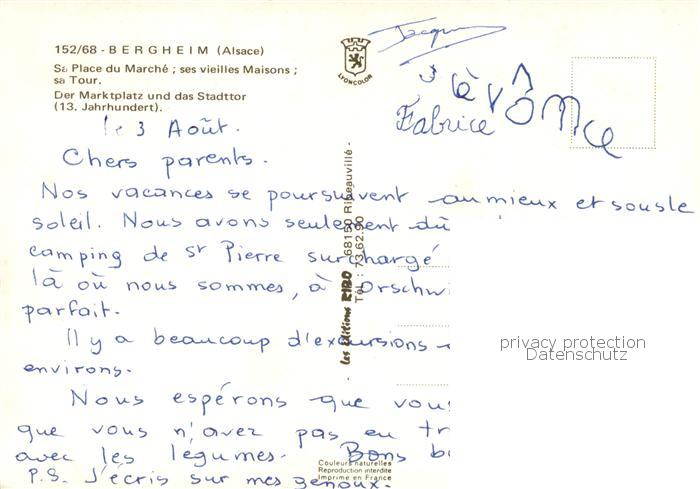 152/68 - BERGHEIM (Alsace)
Sa Place du Marché ; ses vieilles Maisons ;
sa Tour.
Der Marktplatz und das Stadttor
(13. Jahrhundert).
LYONCOLOR
Jacques
Jérôme
Fabrice
le 3 Août.
Chers parents.
Nos vacances se poursuivent au mieux et sous le
soleil. Nous avons seulement dû
camping de St Pierre surchargé
là où nous sommes, à Orschwi
parfait.
Il y a beaucoup d'excursions
environs.
Nous espérons que vou
que vous n'avez pas eu tr
avec les légumes. Bons b
P.S. J'écris sur mes genoux.
les éditions RIBO 68150 Ribeauvillé -
Tél : 73.62.90
Couleurs naturelles
Reproduction interdite
Imprimé en France
privacy protection
Datenschutz